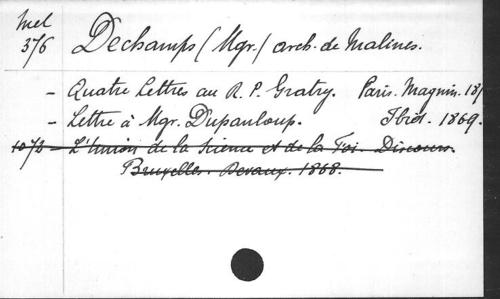 Mel
376
Dechamps (Mgr.) arch. de Malines.
- Quatre Lettres au R. P. Gratry. Paris. Magnin. 18
- Lettre à Mgr. Dupanloup. Ibid. 1869.
1073 - L'Union de la Science et de la Foi. Discours.
Bruxelles. Devaux. 1868.